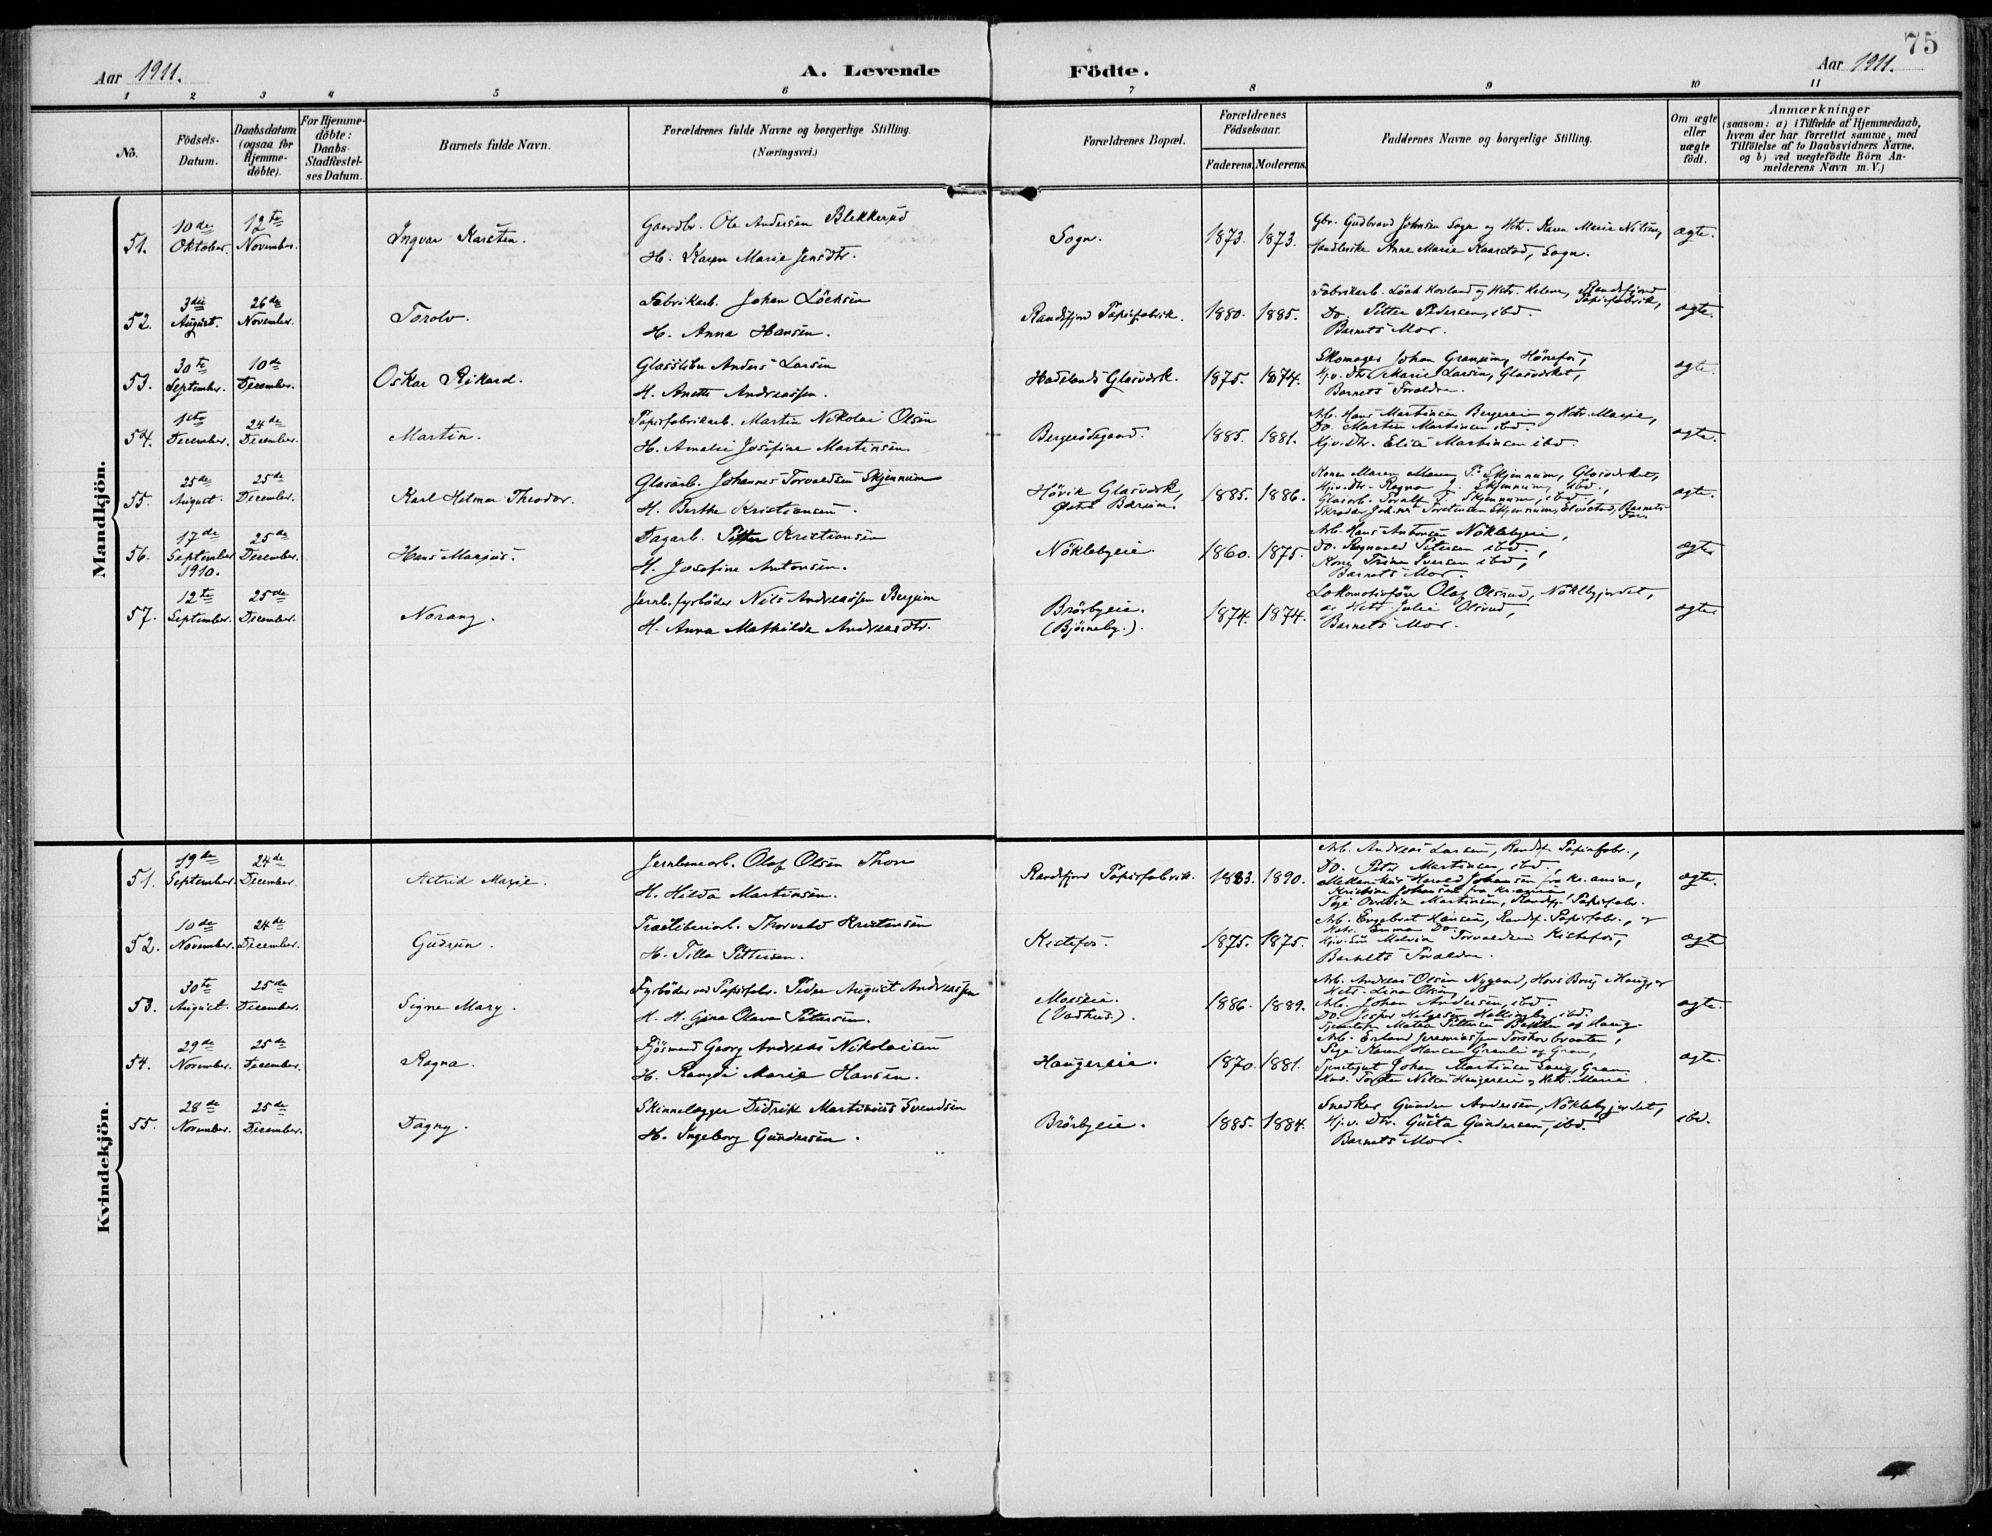 75
Aar 1911. A. Levende Födte. Aar 1911.
1 2 3 4 5 6 7 8 9 10 11
No.
Födsels-
Datum.
Daabsdatum
(ogsaa for
Hjemme-
döbte).
For Hjemme-
döbte:
Daabs-
Stadfæstel-
ses Datum.
Barnets fulde Navn.
Forældrenes fulde Navne og borgerlige Stilling.
(Næringsvei.)
Forældrenes Bopæl.
Forældrenes
Födselsaar.
Faderens. Moderens.
Faddernes Navne og borgerlige Stilling.
Om ægte
eller
uægte
födt.
Anmærkninger
(saasom: a) i Tilfælde af Hjemmedaab,
hvem der har forrettet samme, med
Tilföielse af to Daabsvidners Navne.
og b) ved uægtefödte Börn An-
melderens Navn m. V.)
Mandkjön.
51.
10de
Oktober.
12te
November.
Ingvar Karsten.
Gaardbr. Ole Andersen Blekkerud
H. Karen Marie Jensdtr.
Sogn.
1873. 1873.
Gbr. Gudbrand Johnsen Sogn og Hstr. Karen Marie Nilsen,
Anne Marie Kaarstad, Sogn.
ægte.
52.
3die
August.
26de
November.
Torolv.
Fabrikarb. Johan Löchsen
H. Anna Hansen.
Randsfjord Papirfabrik.
1880. 1885.
Fabrikarb. Löch Hovland og Hstr. Helene, Randsfjord
Papirfabrik,
Do. Petter Pedersen, ibd.
Barnets Mor.
ægte.
53.
30te
September.
10de
December.
Oskar Rikard.
Glassliber Anders Larsen
H. Anette Andreassen.
Hadelands Glasværk.
1875. 1874.
Skomager Johan Hönefos,
Pj.v. Dtr. Marie Larsen, Glasværket,
Barnets Forældre.
ægte.
54.
1ste
December.
24de
December.
Martin.
Papirfabrikarb. Martin Nikolai Olsen
H. Amalie Josefine Martinsen.
1885. 1881.
Arb. Hans Martinsen Bergereie og Hstr. Marie,
Do. Martin Martinsen ibd.
Hjv. Dtr. Elise Martinsen ibd.
ægte.
55.
25de
August.
25de
December.
Karl Helmer Theodor.
Glasarb. Johannes Torvaldsen Skjennum
H. Berthe Kristiansen.
Hövik Glasværk,
Östre Bærum.
1885. 1886.
Kone Maren T. Skjennum, Glasværket,
Hjv. Dtr. Ragna J. Skjennum, ibd.,
Glasarb. Toralf T. Skjennum, ibd.,
Barnets
Far.
ægte.
56.
17de
September
1910.
25de
December.
Hans Marius.
Dagarb. Petter Kristiansen
H. Josefine Antonsen.
Nöklebyeie.
1860. 1875.
Arb. Hans Antonsen Nöklebyeie,
Do. Ragnvald Petersen ibd.,
Kone Trine Iversen ibd.,
Barnets Mor.
ægte
57.
12te
September.
25de
December.
Norang.
Jernb. fyrböder Nils Andreassen Bergum
H. Anna Mathilde Andreasdtr.
Brörbyeie.
(Björneby.).
1874. 1874.
Lokomotivförer Olaf Olsrud, Nöklebyjordet,
og Hstr. Julie Olsrud,
Barnets Mor.
ægte
Kvindekjön.
51.
19de
September.
24de
December.
Astrid Marie.
Jernbanearb. Olaf Olsen Thon
H. Hilda Martinsen.
Randsfjord Papirfabrik.
1883. 1890.
Arb. Andreas Larsen, Randsf. Papirfabr.,
Do. Peter Martinsen, ibd.,
Mekanikus Harald Johansen fra Kr.ania,
Kristine Johansen fra Kr.ania,
Pige Martinsen, Randsfj. Papirfabr.
ægte.
52.
10de
November.
24de
December.
Gudrun.
Træsliberiarb. Thorvald Kristensen
H. Tilla Pettersen.
Kistefos.
1875. 1875.
Arb. Engebret Hansen, Randsf. Papirfabr., og
Hstr. Emma Do.
Hjv. Sön Melvin Torvaldsen Kistefos,
Barnets Forældre.
ægte
53.
30te
August.
25de
December.
Signe Mary.
Fyrböder ved Papirfabr. Peder August Andreassen
H. H. Gina Olava Pettersen.
Moseeie.
1886. 1889.
Arb. Andreas Olsen Nygaard,
Hstr. Lina Olsen,
Arb. Johan Andersen, ibd.
Do. Jesper Helgesen Hallingby, ibd.
ægte.
54.
29de
November.
25de
December.
Ragna.
Fjösmand Georg Andreas Nikolaisen
H. Randi Marie Hansen.
Haugereie.
1870. 1881.
Arb. Erland Jeremiassen
Pige Karen Hansen Granli og Gran,
Johan Martinsen Gran,
Nilsen Haugereie og Hstr. Marie
ægte.
55.
28de
November.
25de
December.
Dagny.
Skinnelægger Didrik Martinius Svendsen
H. Ingeborg Gundersen.
Brörbyeie.
1885. 1884.
Snedker Gunder Andersen, Nöklebyjordet,
Hj.v. Dtr. Gusta Gundersen, ibd.
Barnets Mor.
ibd.